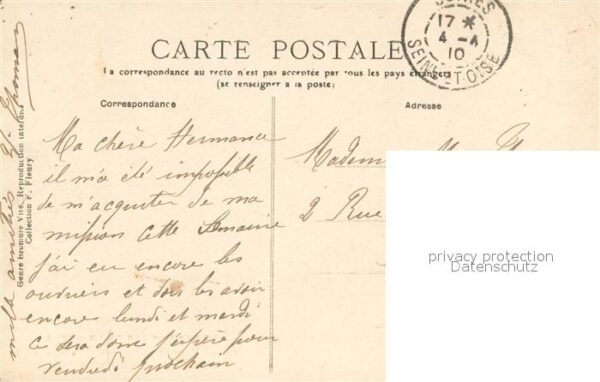 CARTE POSTALE
La correspondance au recto n'est pas acceptée par tous les pays étrangers
(se renseigner à la poste)
Correspondance
Adresse
17 *
4 - 4
10
SEINE-ET-OISE
Ma chère Hermance
il m'a été impossible
de m'acquitter de ma
mission cette semaine
j'ai eu encore les
ouvriers et dois les avoir
encore lundi et mardi
ce sera donc j'espère pour
vendredi prochain
mille amitiés
Genre Bromure Vite, Reproduction interdite
Collection F. Fleury
2 Rue
privacy protection
Datenschutz